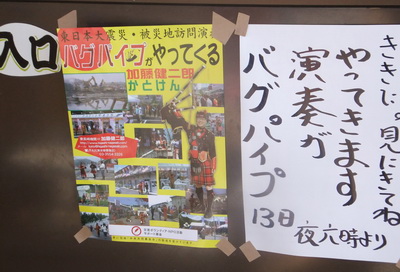 入口
東日本大震災・被災地訪問演
バグパイプがやってくる
加藤健二郎
かとけん
ききに。見にきてね
やってきます
演奏が
バグパイプ
13日
夜六時より